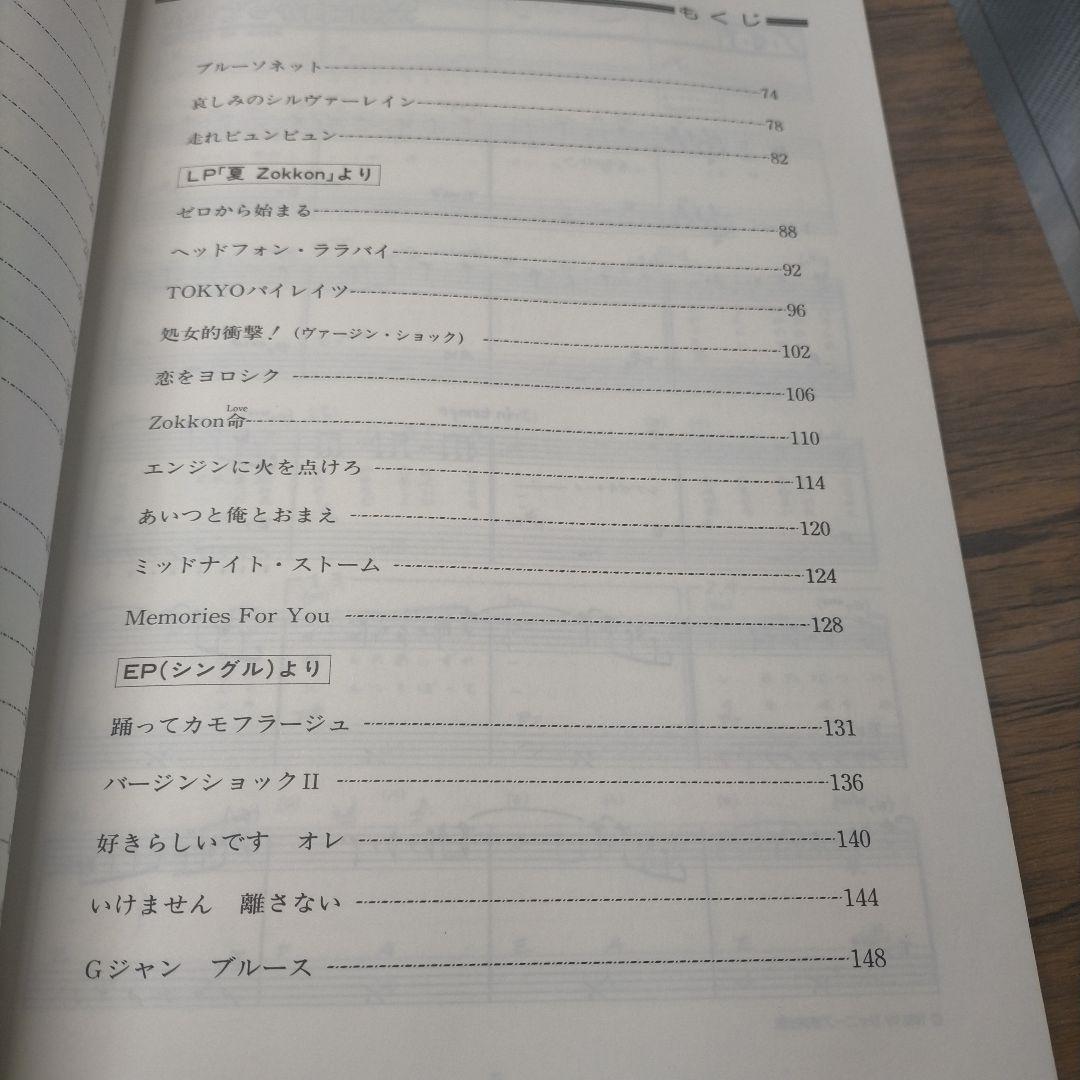 もくじ
ブルーソネット 74
哀しみのシルヴァーレイン 78
走れビュンビュン 82
LP「夏 Zokkon」より
ゼロから始まる 88
ヘッドフォン・ララバイ 92
TOKYOパイレイツ 96
処女的衝撃!(ヴァージン・ショック) 102
恋をヨロシク 106
Love
Zokkon命 110
エンジンに火を点けろ 114
あいつと俺とおまえ 120
ミッドナイト・ストーム 124
Memories For You 128
EP(シングル)より
踊ってカモフラージュ 131
バージンショックII 136
好きらしいです オレ 140
いけません 離さない 144
Gジャン ブルース 148